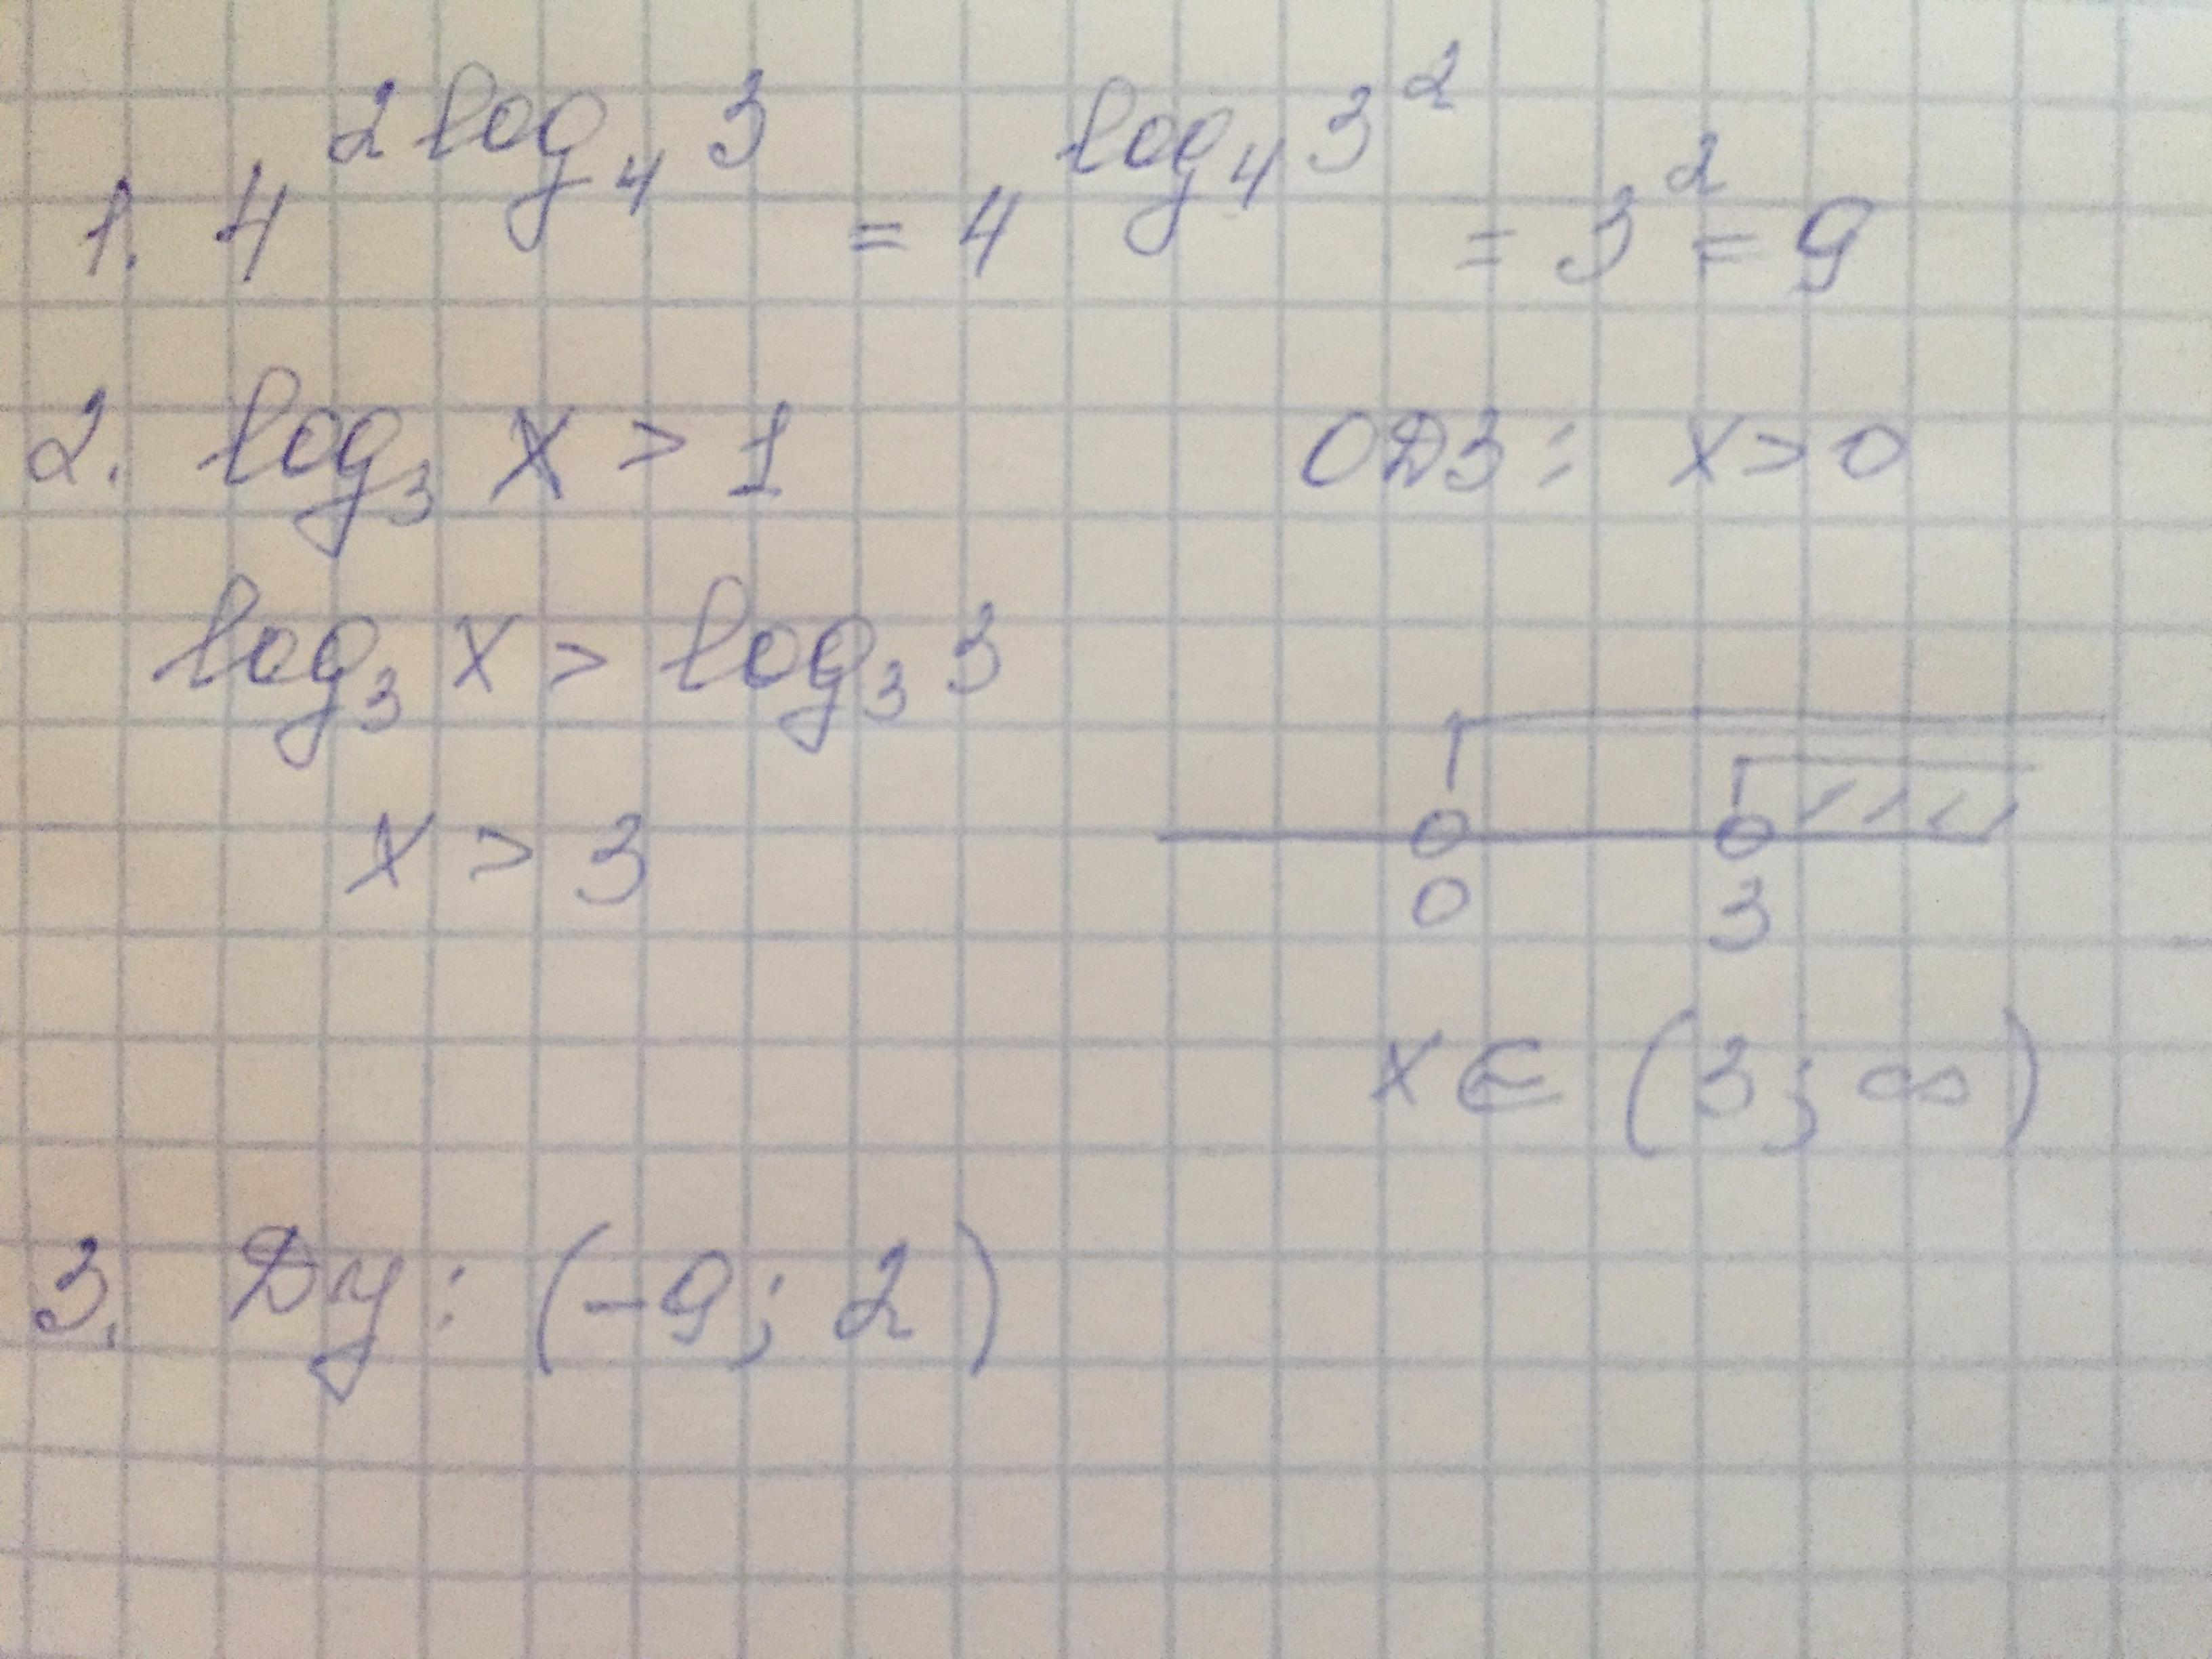 1. 4^{2 log_4 3} = 4^{log_4 3^2} = 3^2 = 9
2. log_3 x > 1 ОДЗ: x > 0
log_3 x > log_3 3
x > 3
0 3
x ∈ (3; ∞)
3. Dy: (-9; 2)